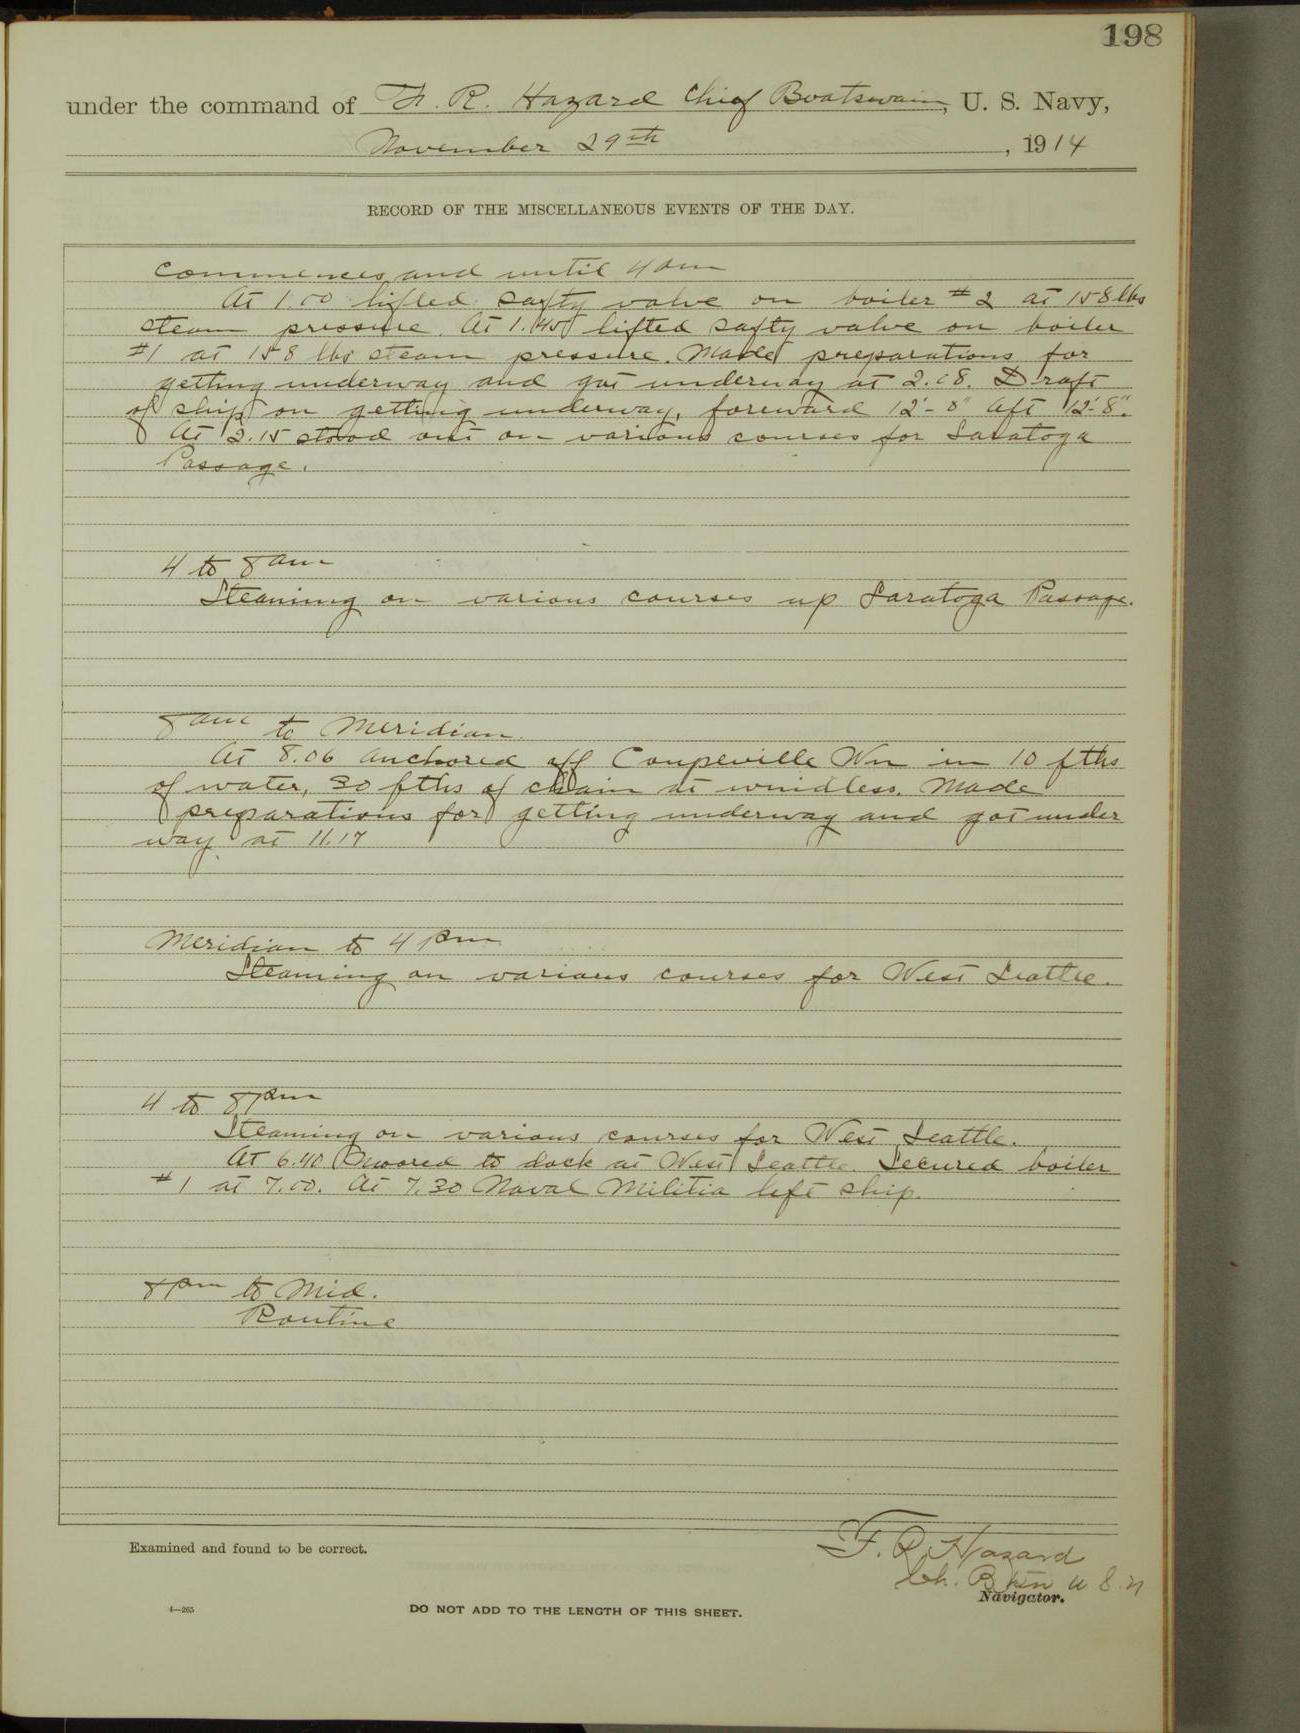 198
under the command of F. R. Hazard Chief Boatswain, U. S. Navy,
November 29th, 1914
RECORD OF THE MISCELLANEOUS EVENTS OF THE DAY.
Commences and until 4 am
At 1.00 lifted safty valve on boiler #2 at 158 lbs
steam pressure. At 1.45 lifted safty valve on boiler
#1 at 158 lbs steam pressure. Made preparations for
getting underway and got underway at 2.08. Draft
of ship on getting underway, foreward 12'-0" aft 12'-8".
At 2.15 stood out on various courses for Saratoga
Passage.
4 to 8 am
Steaming on various courses up Saratoga Passage.
8 am to Meridian.
At 8.06 anchored off Coupeville Wn in 10 fths
of water, 30 fths of chain at windless. Made
preparations for getting underway and got under
way at 11.17
Meridian to 4 pm
Steaming on various courses for West Seattle.
4 to 8 pm
Steaming on various courses for West Seattle.
At 6.40 moored to dock at West Seattle. Secured boiler
#1 at 7.00. At 7.30 Naval Militia left ship.
8 pm to Mid.
Routine
Examined and found to be correct.
F. R. Hazard
Ch. Btsn U S N
Navigator.
4—265
DO NOT ADD TO THE LENGTH OF THIS SHEET.